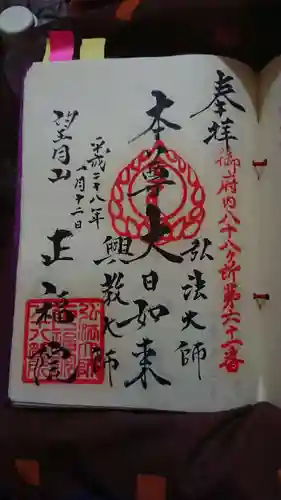 奉拝
御府内八十八ヶ所第六十一番
弘法大師
本尊大日如来
興教大師
平成二十八年
月十二日
望月山
正福院